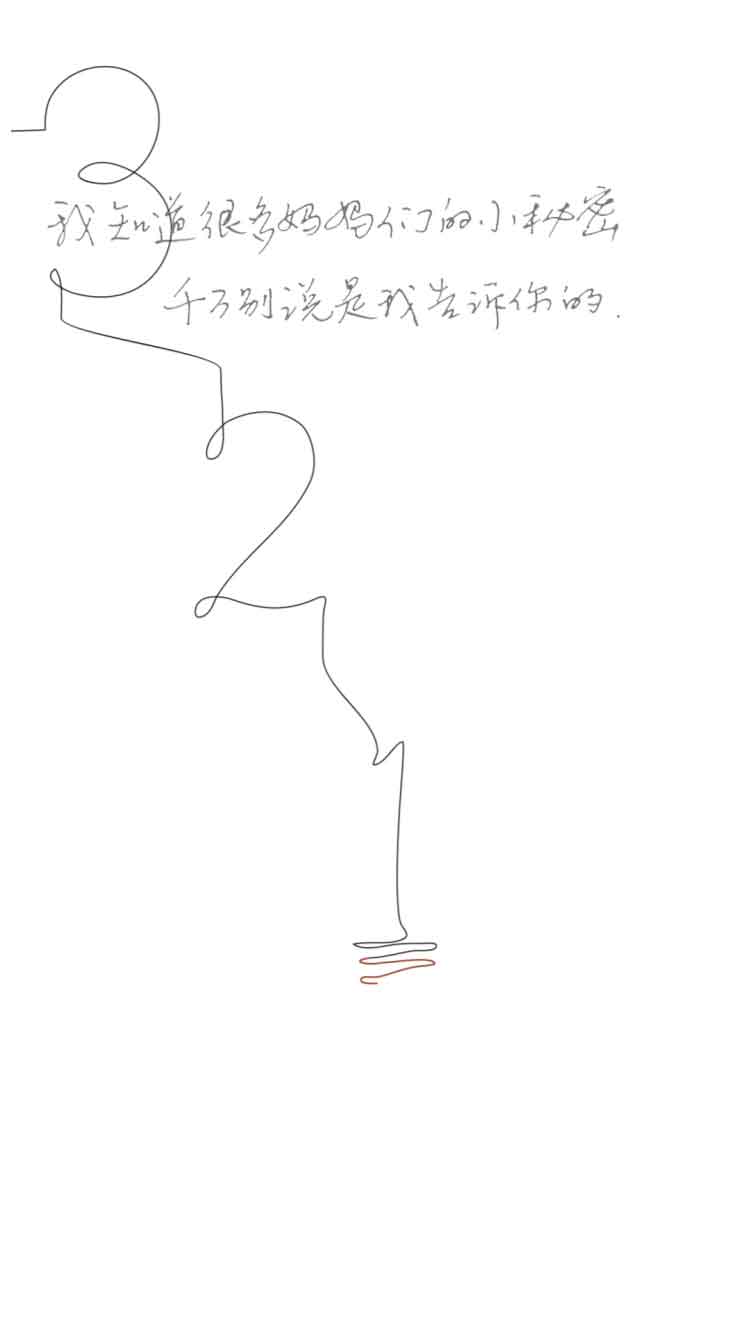 3
我知道很多妈妈们的小秘密
千万别说是我告诉你的.
2
1